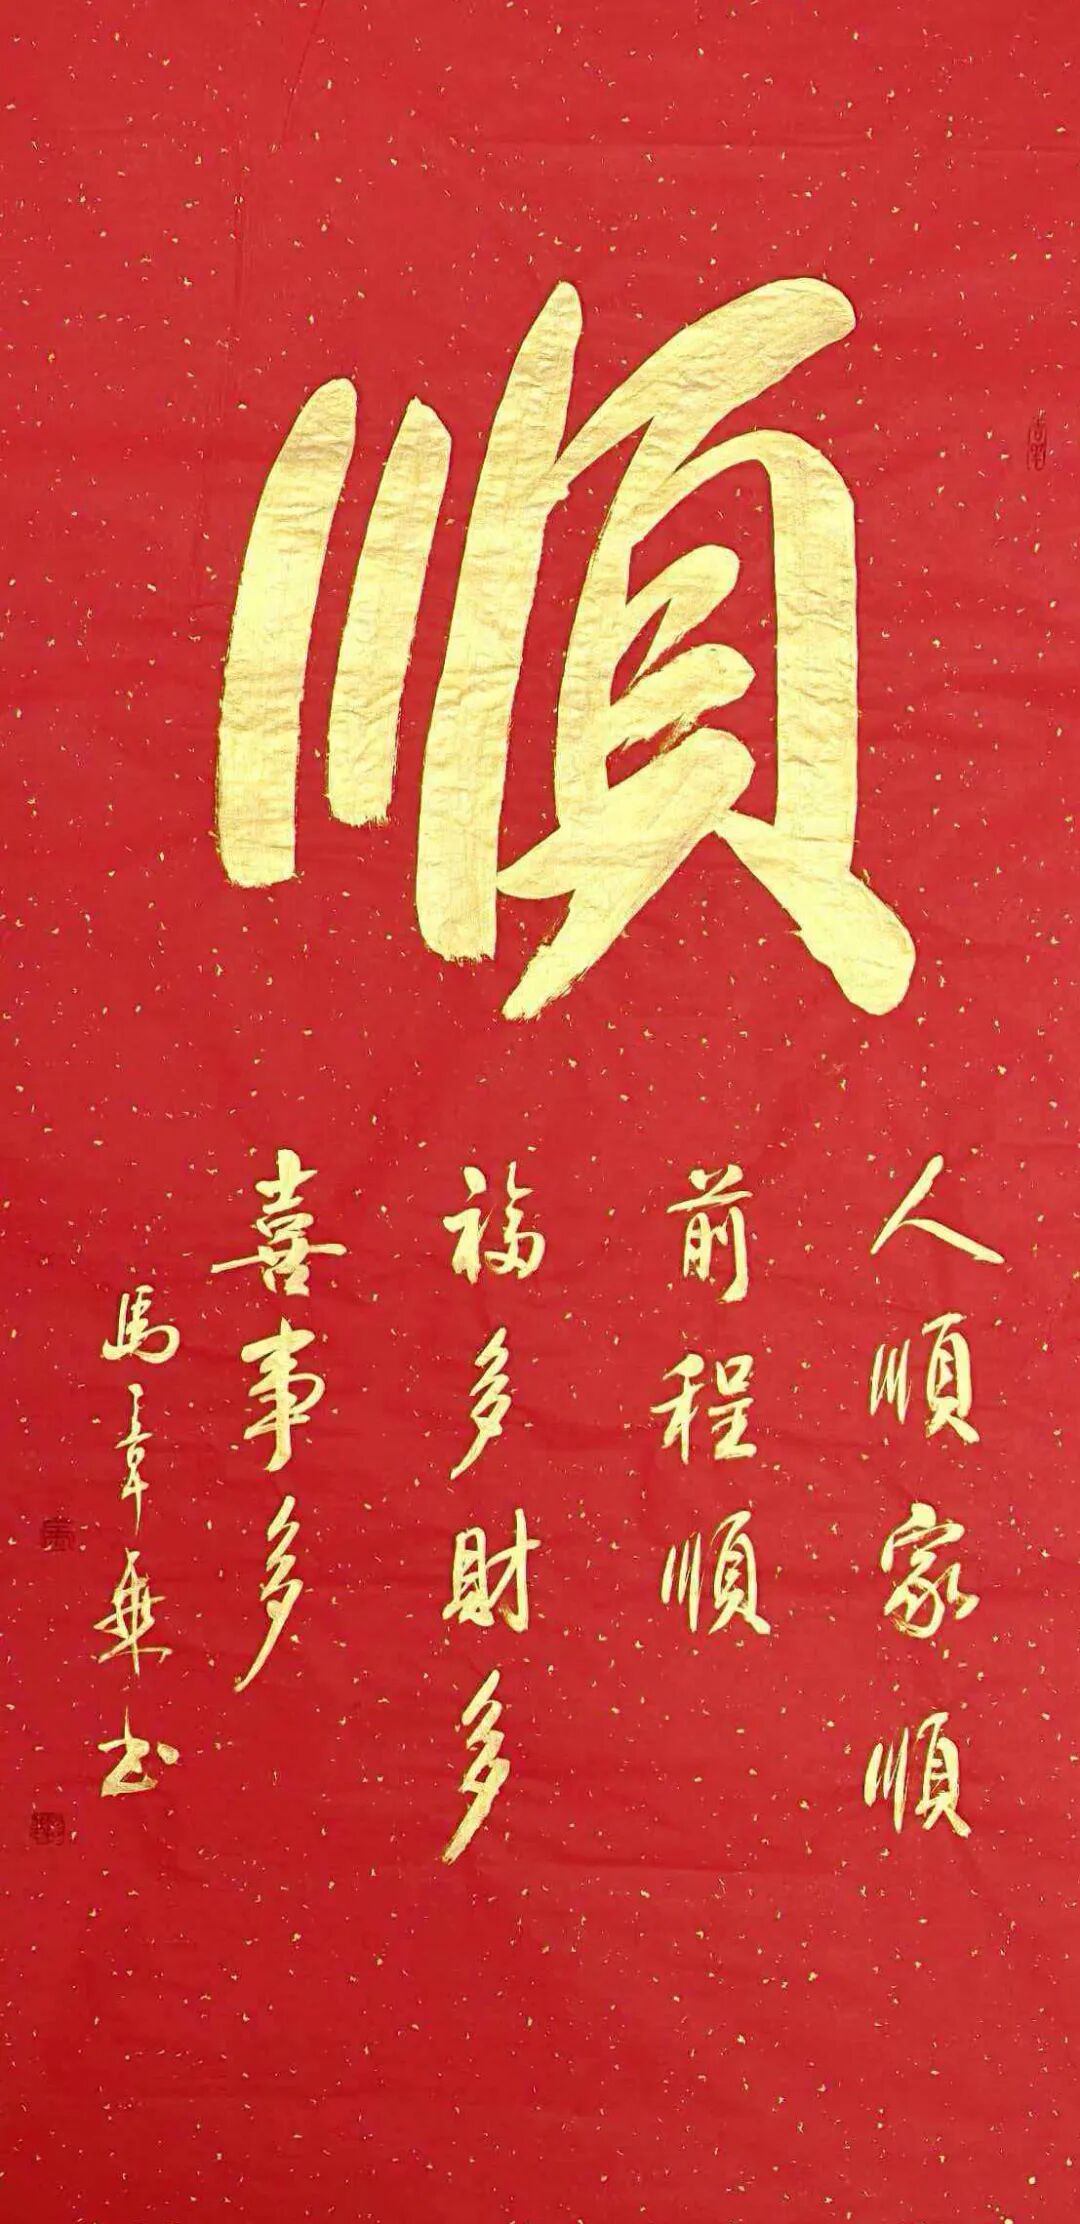 順
人順家順
前程順
福多財多
喜事多
馬章乘书